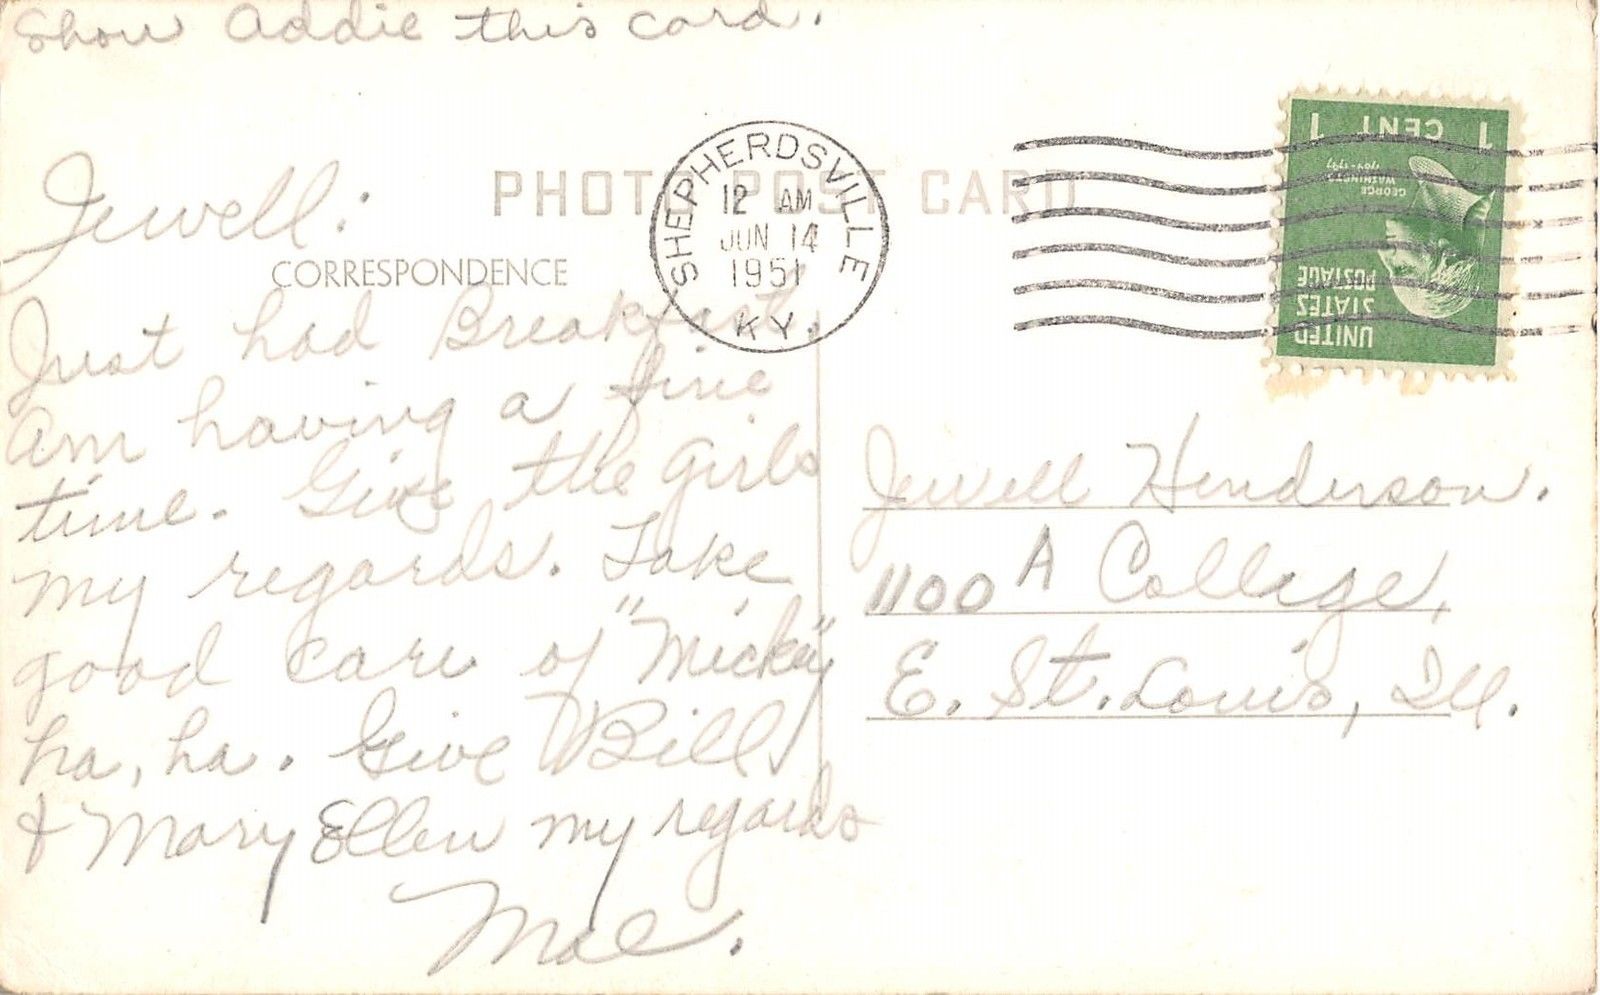 Show Addie this card.
PHOTO POST CARD
SHEPHERDSVILLE
12 AM
JUN 14
1951
KY.
1 CENT 1
GEORGE
WASHINGTON
UNITED
STATES
POSTAGE
Jewell:
CORRESPONDENCE
Just had Breakfast.
Am having a fine
time. Give the Girls
my regards. Take
good care of "Micky"
ha, ha. Give Bill
& Mary Ellen my regards
Mae.
Jewell Henderson.
1100 A College,
E. St. Louis, Ill.